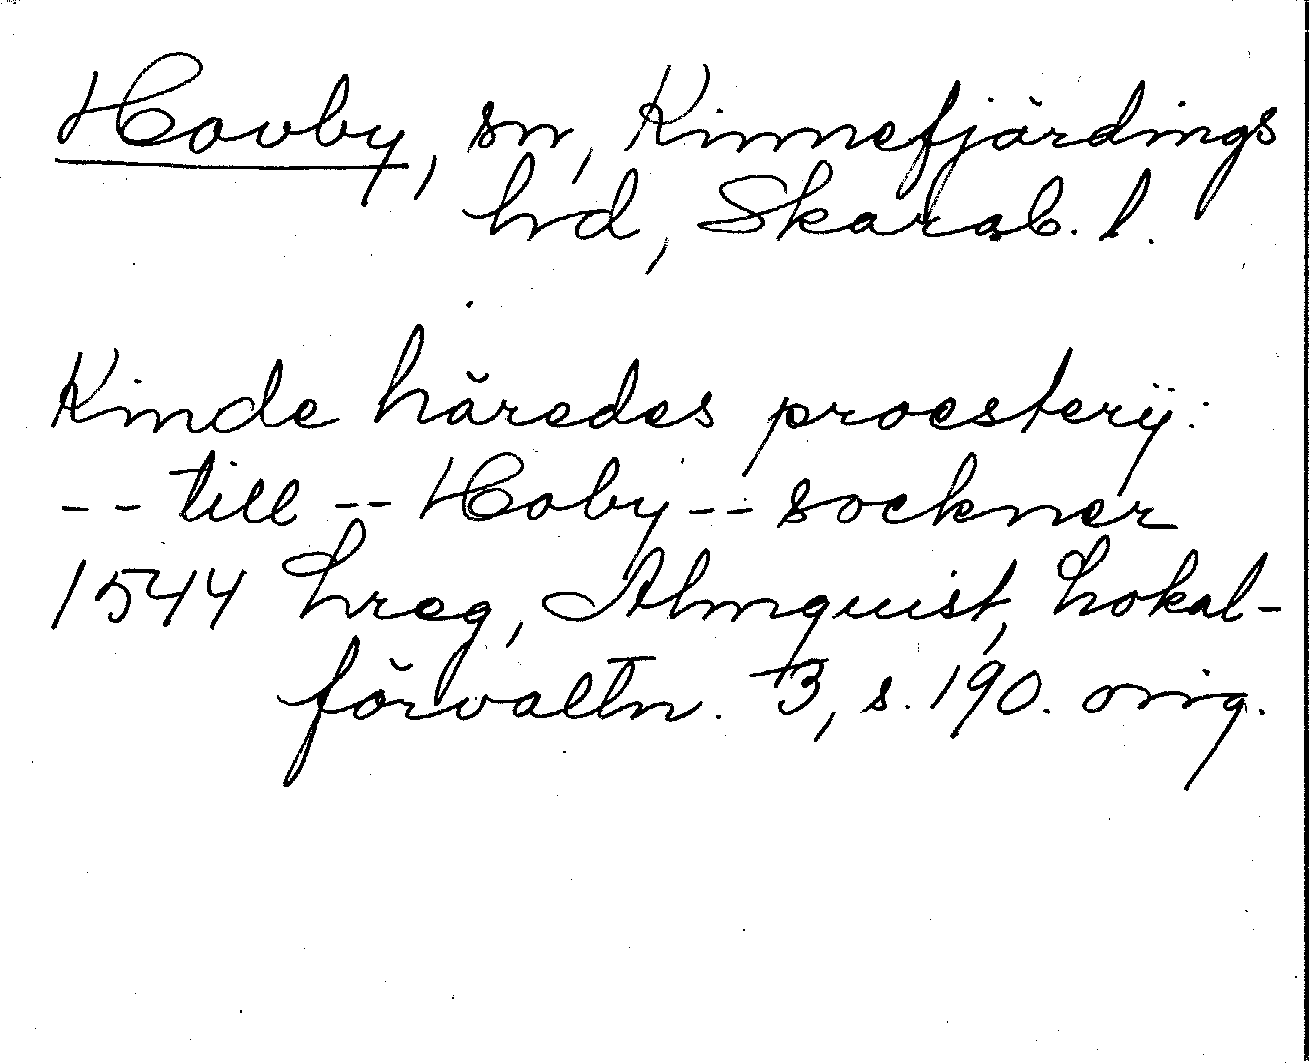 Hovby, sn, Kinnefjärdings
hd, Skarab. l.
Kinde häredes proesterÿ:
-- till -- Hoby -- socknner
1544 Lreg, Almquist, Lokal-
förvaltn. 3, s. 190. orig.